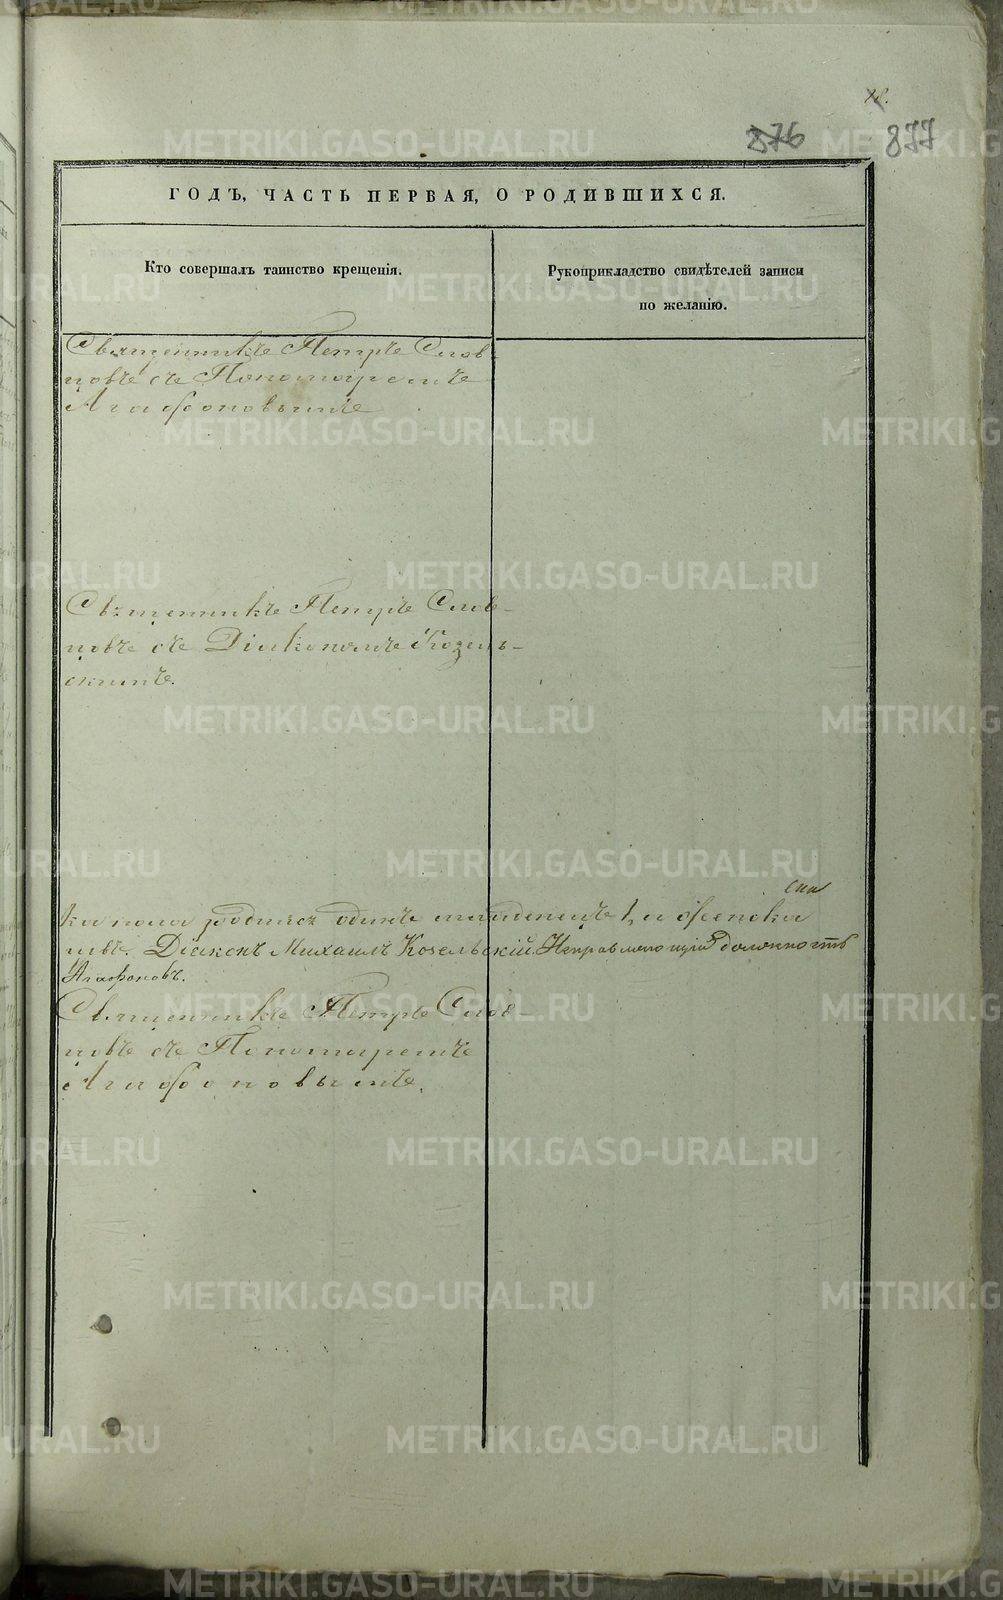 876 877
ГОДЪ, ЧАСТЬ ПЕРВАЯ, О РОДИВШИХСЯ.
Кто совершалъ таинство крещенія.
Рукоприкладство свидѣтелей записи
по желанію.
Священникъ Петръ Слов
цовъ съ Пономаремъ
Агафоновымъ
Священникъ Петръ Слов-
цовъ съ Діакономъ Козель-
скимъ.
ка пола родился одинъ младенецъ 1, а женска
Діаконъ Михаилъ Козельскій. Исправляющій должность
Агафоновъ.
Священникъ Петръ Слов-
цовъ съ Пономаремъ
Агафоновымъ.
METRIKI.GASO-URAL.RU